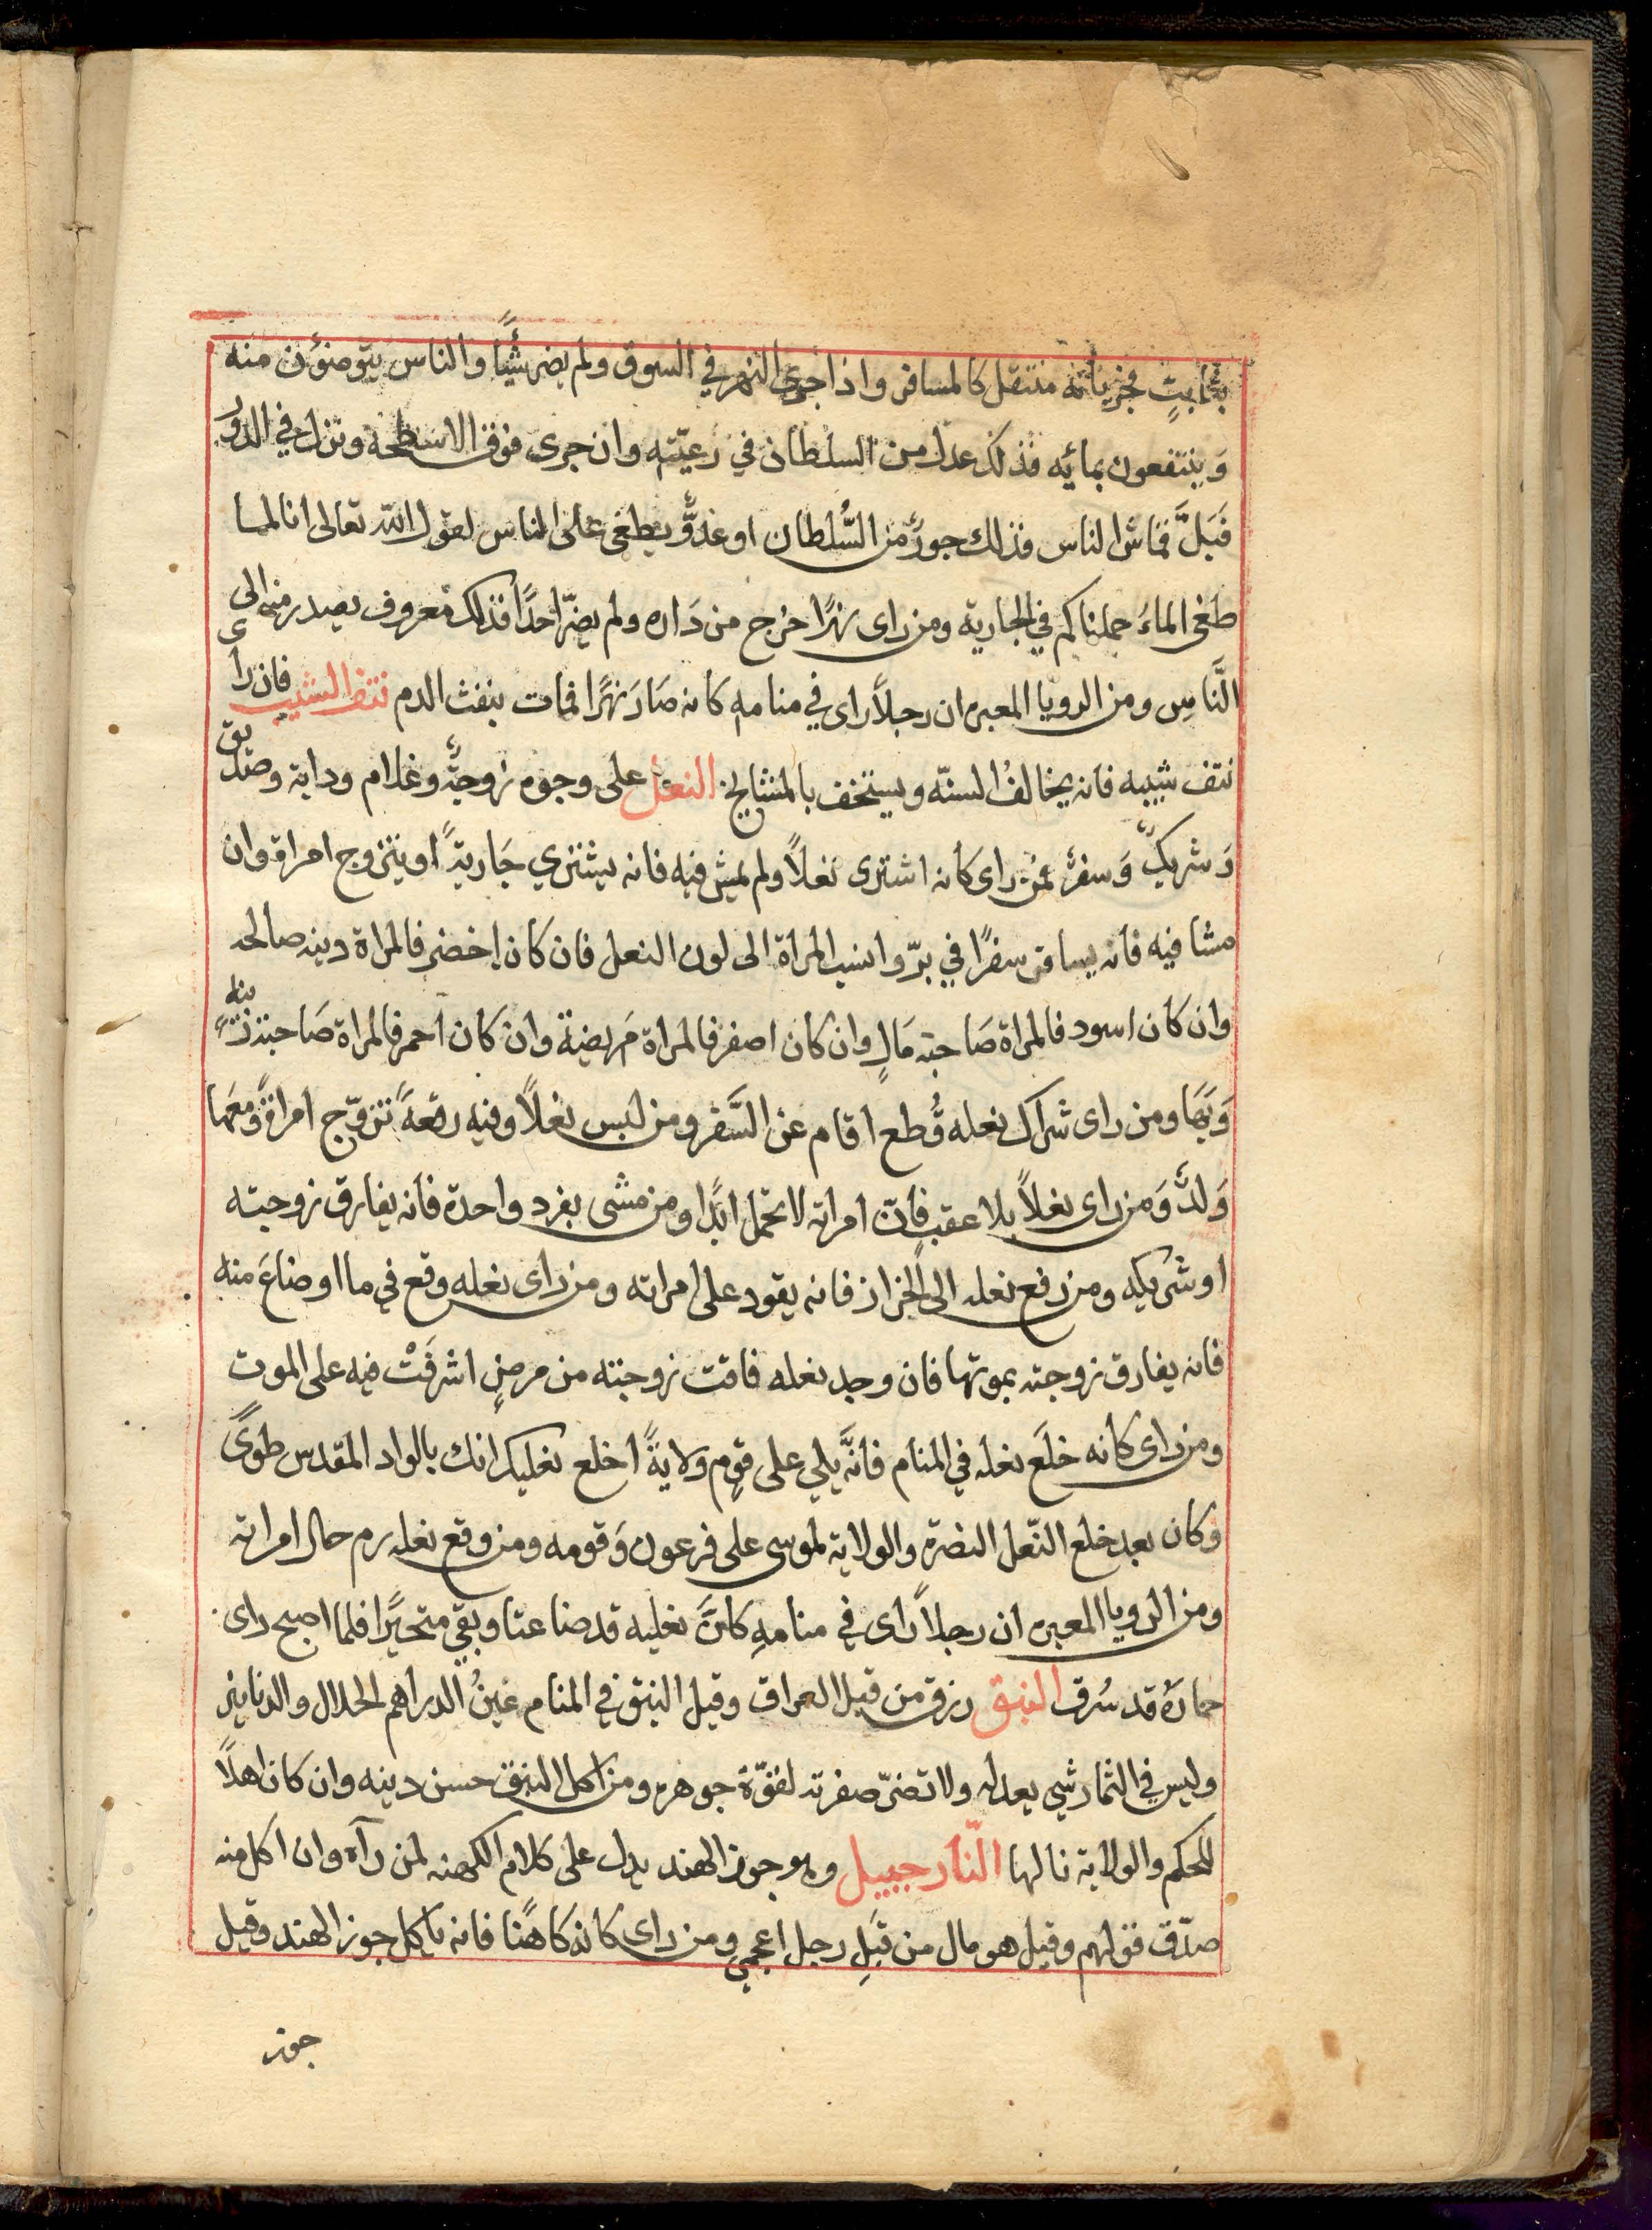 بثابتٍ فجريانه منتقل كالمسافر واذا جرى النهر في السوق ولم يضر شيًّا والناس يتوضؤن منه
وَينتفعون بمائه فذلك عدل من السلطان في رعيّته وان جرى فوق الاسطحة ونزل في الدور
فَبَلَّ قماش الناس فذلك جورٌ من السُّلطان او عدوٌّ يطغى على الناس لقول الله تعالى انا لما
طغى الماءُ حملناكم في الجارية ومن راى نهرًا خرج من دَاره ولم يضرّ احدًا فذلك معروف يصدر منه الى
النَّاسِ ومن الرويا المعبره ان رجلاً راى في منامهِ كانه صَارَ نهرًا فمات بنفث الدم نتف الشيب فان راى
نتف شيبه فانه يخالفُ السنّه ويستخف بالمشايخ النعل على وجوه زوجةٌ وغلام ودابة وصديق
وَشريكٌ وَسفرٌ فمن راى كانه اشترى نعلاً ولم يمش فيه فانه يشتري جَاريةً او يتزوج امراة وان
مشا فيه فانه يسافر سفرًا في برّ وانسب المراة الى لون النعل فان كان اخضر فالمراة دينه صالحه
وان كان اسود فالمراة صَاحبة مَالٍ وان كان اصفر فالمراة مَريضة وان كان احمر فالمراة صَاحبة زينه
وَبَهَا ومن راى شراك نعله قُطع اقام عن السَّفر ومن لبس نعلاً وفيه رقعَةً تزوّج امراةً ومعَها
وَلدٌ وَمن راى نعلاً بلا عقبٍ فانّ امراته لا تحمل ابدًا ومن مشى بفرد واحدة فانه يفارق زوجته
او شريكه ومن دفع نعله الى الخراز فانه يقود على امراته ومن راى نعله وقع في ما او ضاعَ منه
فانه يفارق زوجته بموتها فان وجد نعله فاقت زوجته من مرضٍ اشرفَتْ فيه على الموت
ومن راى كانه خلَع نعله في المنام فانَّه يلي على قومٍ ولايةً اخلع نعليك انك بالواد المقدس طوىً
وكان بعد خلع النّعل النصرة والولاية لموسى على فرعون وَقومه ومن وقع نعله رم حال امراته
ومن الرويا المعبره ان رجلاً راى في منامهِ كانَّ نعليه قد ضاعتا وبقي متحيًرا فلما اصبح راى
حمارَهُ قد سُرق النبق رزق من قبل العراق وقيل النبق في المنام عينُ الدراهم الحلال والدنانير
وليس في الثمار شيي يعدله ولا تضرّ صفرته لقوّة جوهره ومن اكل النبق حسن دينه وان كان اهلاً
للحكم والولاية نالها النّارجيبيل وهو جوز الهند يدل على كلام الكهنه لمن رآه وان اكل منه
صدّق قولهم وقيل هو مال من قبَلِ رجل اعجمي ومن راى كانه كَاهنًا فانه ياكل جوز الهند وقيل
جوز